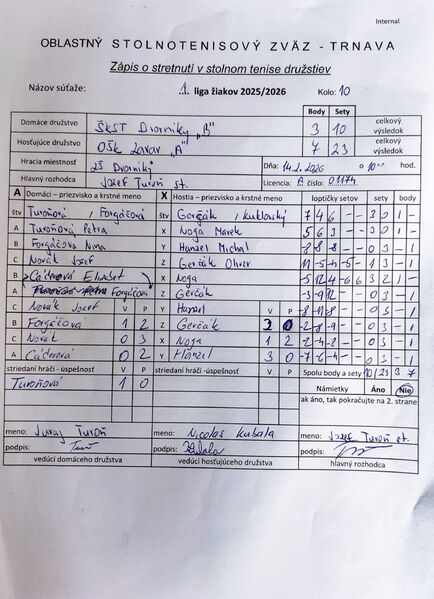 Internal
OBLASTNÝ STOLNOTENISOVÝ ZVÄZ - TRNAVA
Zápis o stretnutí v stolnom tenise družstiev
Názov súťaže: 1. liga žiakov 2025/2026 Kolo: 10
Body Sety
Domáce družstvo ŠKST Dvorníky „B" 3 10 celkový výsledok
Hosťujúce družstvo OŠK Zavar „A" 7 23 celkový výsledok
Hracia miestnosť ZŠ Dvorníky Dňa: 14.2.2026 o 10:00 hod.
Hlavný rozhodca Jozef Turoň st. Licencia: A číslo: 01174
A Domáci - priezvisko a krstné meno X Hostia - priezvisko a krstné meno loptičky setov sety body
štv Turoňová, Forgáčová štv Gerčák, 7 4 6 - - 3 0 1 -
A Turoňová Petra X Noga Marek 5 6 3 - - 3 0 1 -
B Forgáčová Nina Y Hanzel Michal 0 3 - 1
C Novák Jozef Z Gerčák Oliver 1 3 - 1
B Cáderová Elizabet X Noga 3 2 1 -
A Forgáčová Z Gerčák 0 3 - 1
C Novák Jozef V P Y Hanzel V P 0 3 - 1
B Forgáčová 1 2 Z Gerčák 3 0 0 3 - 1
C Novák 0 3 X Noga 1 2 0 3 - 1
A Cáderová 0 2 Y Hanzel 3 0 0 3 - 1
striedaní hráči - úspešnosť V P striedaní hráči - úspešnosť V P Spolu body a sety 10/23 3 7
Turoňová 1 0 Námietky Áno Nie
ak áno, tak pokračujte na 2. strane
meno: Juraj Turoň meno: Nicolas Kubala meno: Jozef Turoň st.
podpis: podpis: podpis:
vedúci domáceho družstva vedúci hosťujúceho družstva hlavný rozhodca